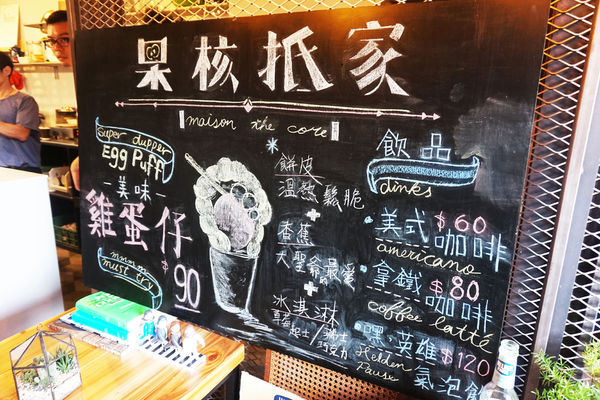 果核抵家
maison the core
Super dupper
Egg Puff
美味
雞蛋仔
mnnm
must try
$90
餅皮
溫熱鬆脆
+
香蕉
大聖爺最愛
+
冰淇淋
草莓
起士/紳士
巧克力
飲品
dinks
美式咖啡 $60
americano
拿鐵咖啡 $80
coffee latté
嘿,英雄 $120
Helden
Pause
氣泡飲